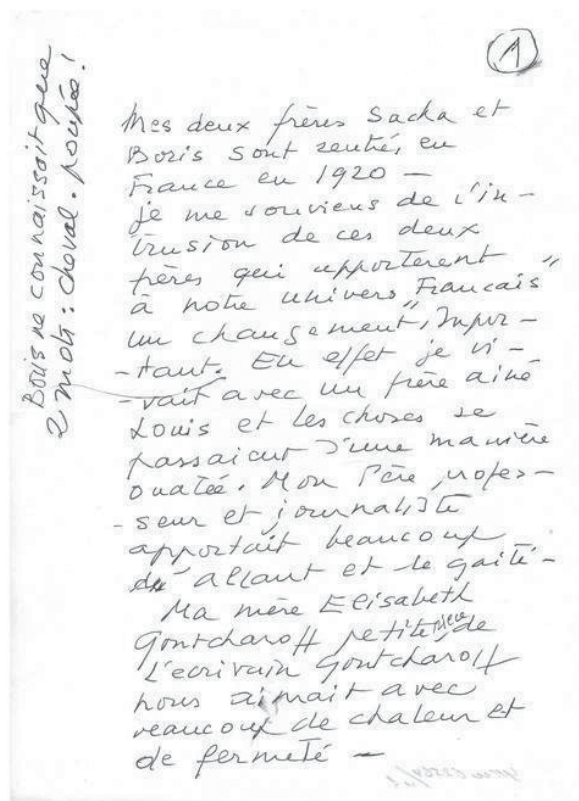 1
Mes deux frères Sacha et
Boris sont rentrés en
France en 1920 —
je me souviens de l'in-
trusion de ces deux
frères qui apportèrent
à notre univers "Francais"
un changement, impor-
-tant. En effet je vi-
-vait avec un frère ainé
Louis et les choses se
passaient d'une manière
ouatée. Mon Père, profes-
-seur et journaliste
apportait beaucoup
d'allant et de gaité-
Ma mère Elisabeth
Gontcharoff petite nièce de
L'ecrivain Gontcharoff
nous aimait avec
beaucoup de chaleur et
de fermeté —
Boris ne connaissait que
2 mots : cheval. poupée!